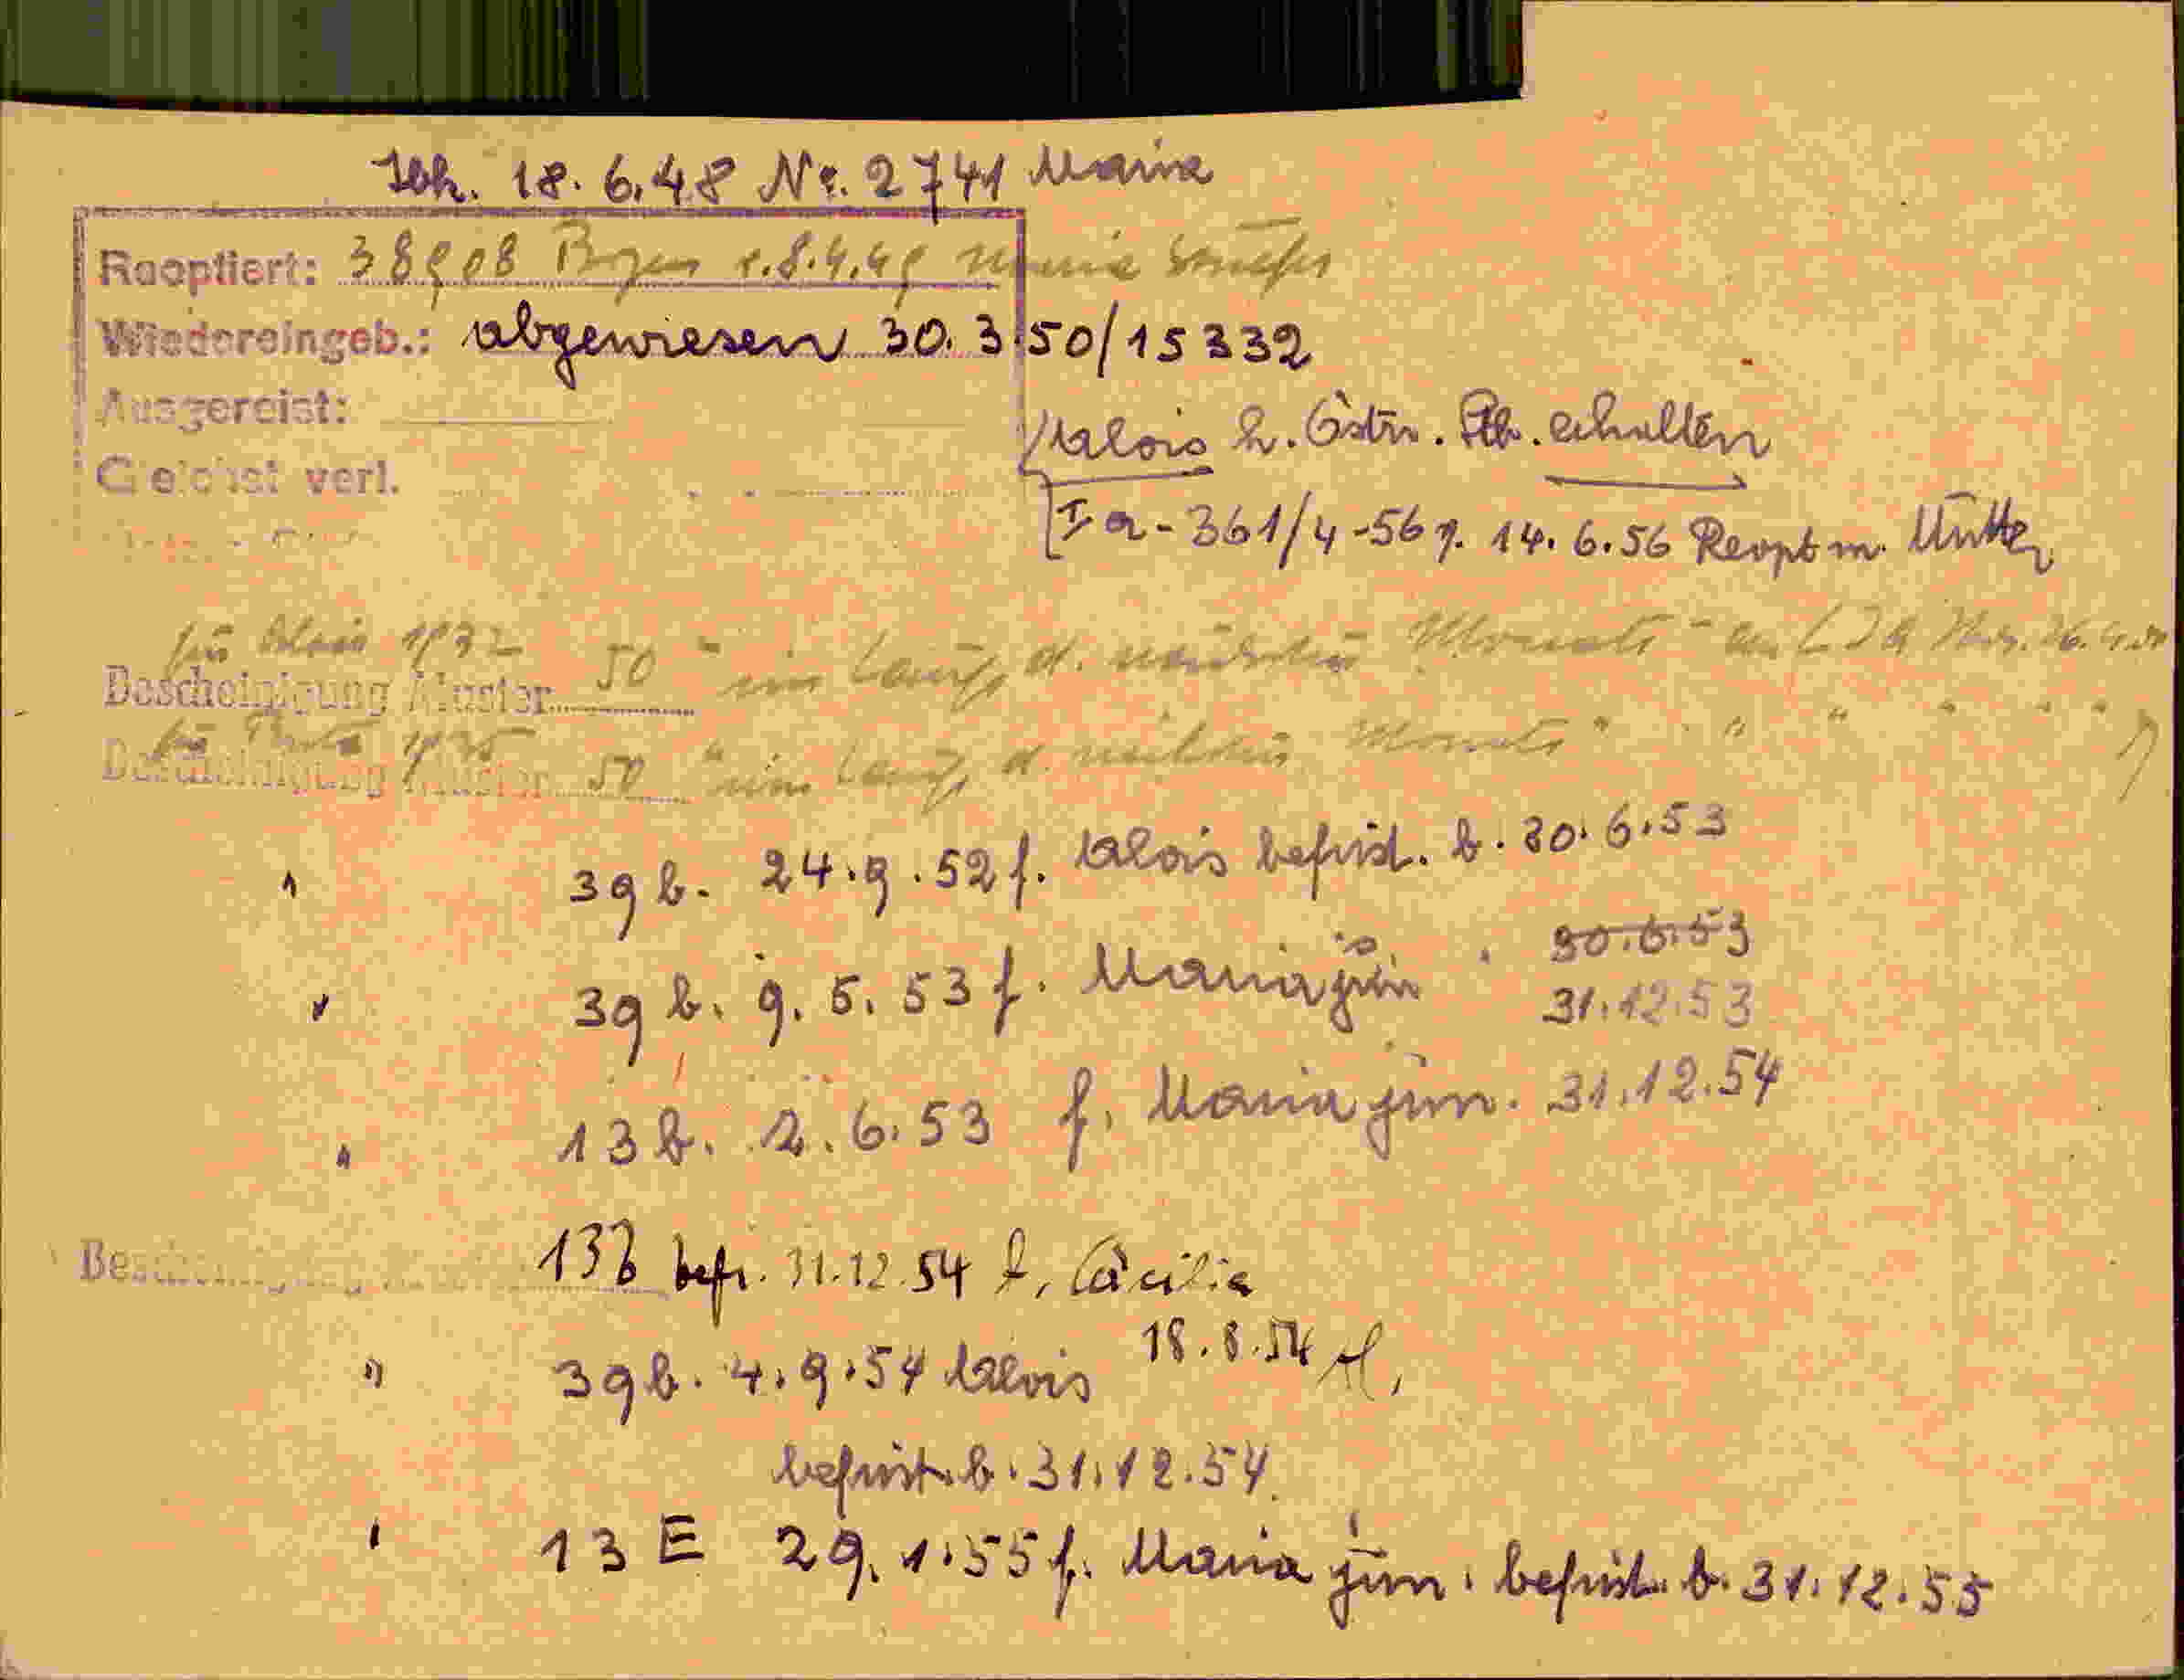 Ibk. 18.6.48 Nr. 2741 Maria
Reoptiert: 38908 Bozen v. 8.4.49 Maria
Wiedereingeb.: abgewiesen 30.3.50/15332
Ausgereist:
Alois h. Östr. Stb. erhalten
Gelöscht verl.
Ia-361/4-56 v. 14.6.56 Reopt m. Mutter
für Alois 1932
Bescheinigung Muster 50 "im Laufe d. nächsten Monats"
für 1935
Bescheinigung Muster 50 "im Laufe d. nächsten Monats" " " " " "
" 39 b. 24.9.52 f. Alois befrist. b. 30.6.53
" 39 b. 9.5.53 f. Maria jun " 30.6.53
31.12.53
" 13 b. 2.6.53 f. Maria jun. 31.12.54
Bescheinigung Muster 13b befr. 31.12.54 f. Cäcilia
18.8.54
" 39 b. 4.9.54 Alois
befrist. b. 31.12.54
" 13 E 29.1.55 f. Maria jun. befrist. b. 31.12.55